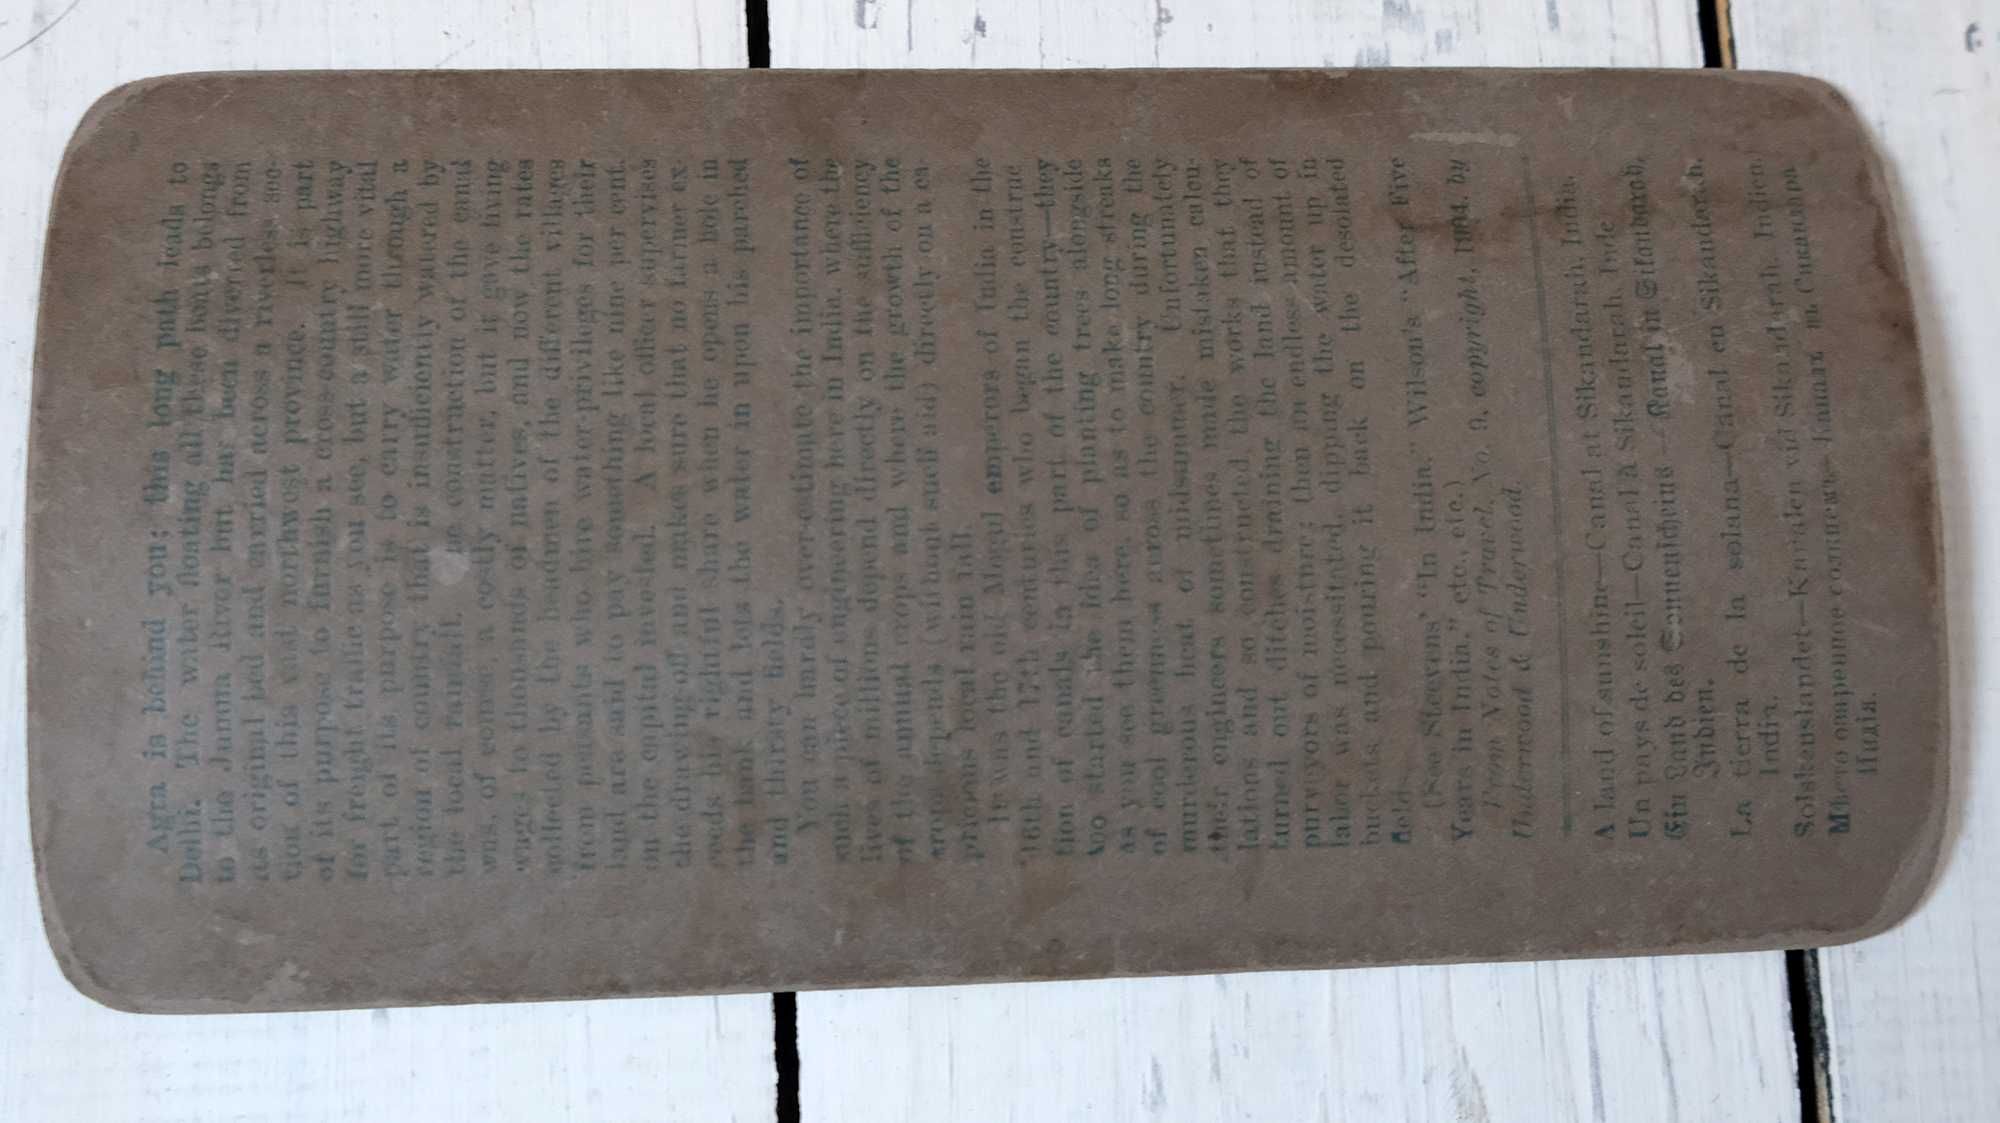 Agra is behind you; this long path leads to
Delhi. The water floating all these boats belongs
to the Jumna River but has been diverted from
its original bed and carried across a riverless sec-
tion of this vast northwest province. It is part
of its purpose to furnish a cross-country highway
for freight traffic as you see, but a still more vital
part of its purpose is to carry water through a
region of country that is insufficiently watered by
the local rainfall. The construction of the canal
was, of course, a costly matter, but it gave living
wages to thousands of natives, and now the rates
collected by the headmen of the different villages
from peasants who hire water-privileges for their
land are said to pay something like nine per cent.
on the capital invested. A local officer supervises
the drawing off and makes sure that no farmer ex-
ceeds his rightful share when he opens a hole in
the bank and lets the water in upon his parched
and thirsty fields.
You can hardly over-estimate the importance of
such a piece of engineering here in India, where the
lives of millions depend directly on the sufficiency
of the annual crops and where the growth of the
crops depends (without such aid) directly on a ca-
pricious local rain fall.
It was the old Mogul emperors of India in the
16th and 17th centuries who began the construc-
tion of canals in this part of the country—they
too started the idea of planting trees alongside
as you see them here, so as to make long streaks
of cool greenness across the country during the
murderous heat of midsummer. Unfortunately
their engineers sometimes made mistaken calcu-
lations and so constructed the works that they
turned out ditches draining the land instead of
purveyors of moisture; then an endless amount of
labor was necessitated, dipping the water up in
buckets and pouring it back on the desolated
fields.
(See Steevens' "In India," Wilson's "After Five
Years in India," etc., etc.)
From Notes of Travel, No. 9, copyright, 1904, by
Underwood & Underwood.
A land of sunshine—Canal at Sikandarah, India.
Un pays de soleil—Canal à Sikanderah, Inde
Ein Land des Sonnenscheins—Kanal in Sikandarah,
Indien.
La tierra de la solana—Canal en Sikandarah.
India.
Solskenslandet—Kanalen vid Sikandarah, Indien.
Мѣсто опаренное солнцемъ—Каналъ въ Сикандара
Индія.